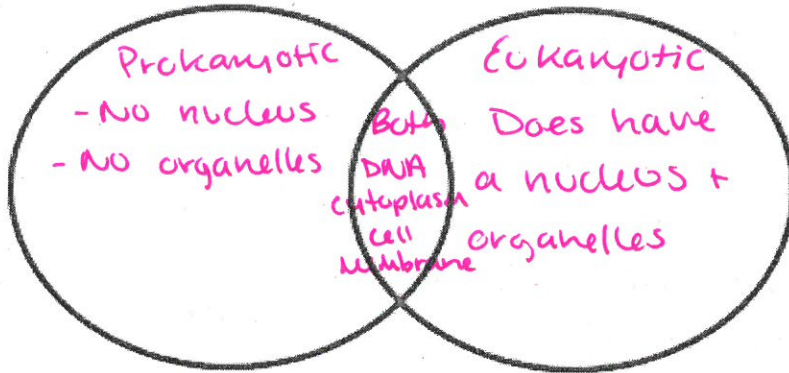 Prokaryotic
- No nucleus
- No organelles
Both
DNA
cytoplasm
cell
membrane
Eukaryotic
Does have
a nucleus +
organelles